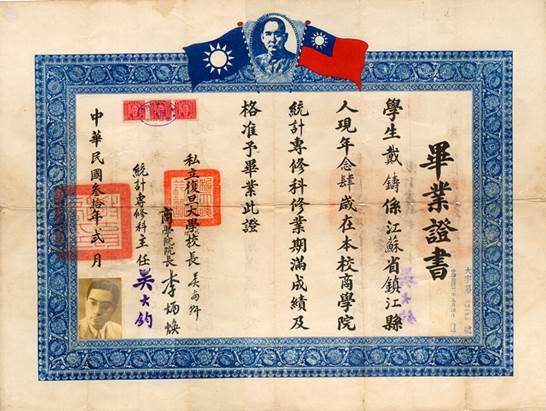 畢業證書
學生戴鑄係江蘇省鎮江縣
人現年念肆歲在本校商學院
統計專修科修業期滿成績及
格准予畢業此證
私立復旦大學校長
商學院院長 李炳煥
統計專修科主任 吳大鈞
中華民國叁拾年貳月